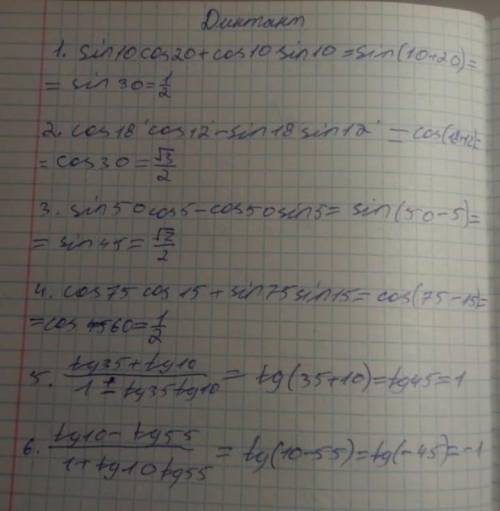 Диктант
1. sin10cos20+cos10sin10=sin(10+20)=
=sin30=1/2
2. cos18 cos12-sin18sin12=cos(18+12)=
=cos30=√3/2
3. sin50cos5-cos50sin5=sin(50-5)=
=sin45=√2/2
4. cos75cos15+sin75sin15=cos(75-15)=
=cos60=1/2
5. (tg35+tg10)/(1-tg35tg10)=tg(35+10)=tg45=1
6. (tg10-tg55)/(1+tg10tg55)=tg(10-55)=tg(-45)=-1